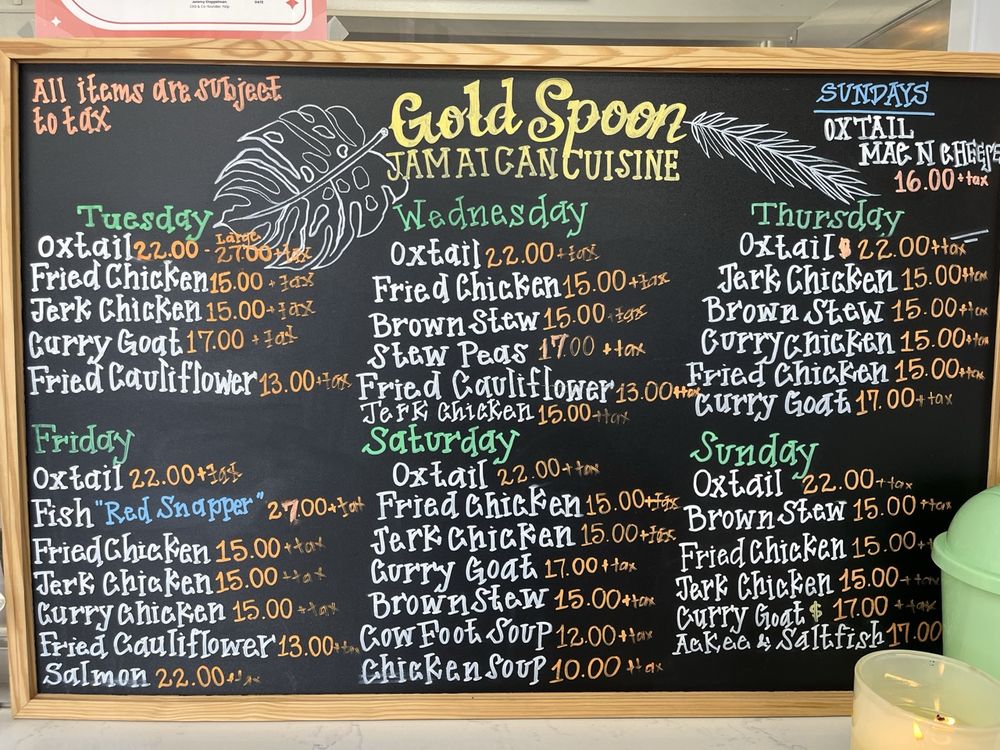 All items are subject
to tax
Gold Spoon
JAMAICAN CUISINE
SUNDAYS
OXTAIL
MAC N CHEESE
16.00+tax
Tuesday
Large
Oxtail 22.00 - 27.00+tax
Fried Chicken 15.00 +tax
Jerk Chicken 15.00 +tax
Curry Goat 17.00 +tax
Fried Cauliflower 13.00+tax
Wednesday
Oxtail 22.00+tax
Fried Chicken 15.00+tax
Brown Stew 15.00 +tax
Stew Peas 17.00 +tax
Fried Cauliflower 13.00+tax
Jerk Chicken 15.00+tax
Thursday
Oxtail $ 22.00+tax
Jerk Chicken 15.00+tax
Brown Stew 15.00+tax
Curry Chicken 15.00+tax
Fried Chicken 15.00+tax
Curry Goat 17.00+tax
Friday
Oxtail 22.00+tax
Fish "Red Snapper" 27.00+tax
Fried Chicken 15.00+tax
Jerk Chicken 15.00 +tax
Curry Chicken 15.00 +tax
Fried Cauliflower 13.00+
Salmon 22.00
Saturday
Oxtail 22.00+tax
Fried Chicken 15.00+tax
Jerk Chicken 15.00+tax
Curry Goat 17.00+tax
Brown Stew 15.00+tax
Cow Foot Soup 12.00+tax
Chicken Soup 10.00 +tax
Sunday
Oxtail 22.00+tax
Brown Stew 15.00+tax
Fried Chicken 15.00+
Jerk Chicken 15.00+tax
Curry Goat $ 17.00 +tax
Ackee & Saltfish 17.00